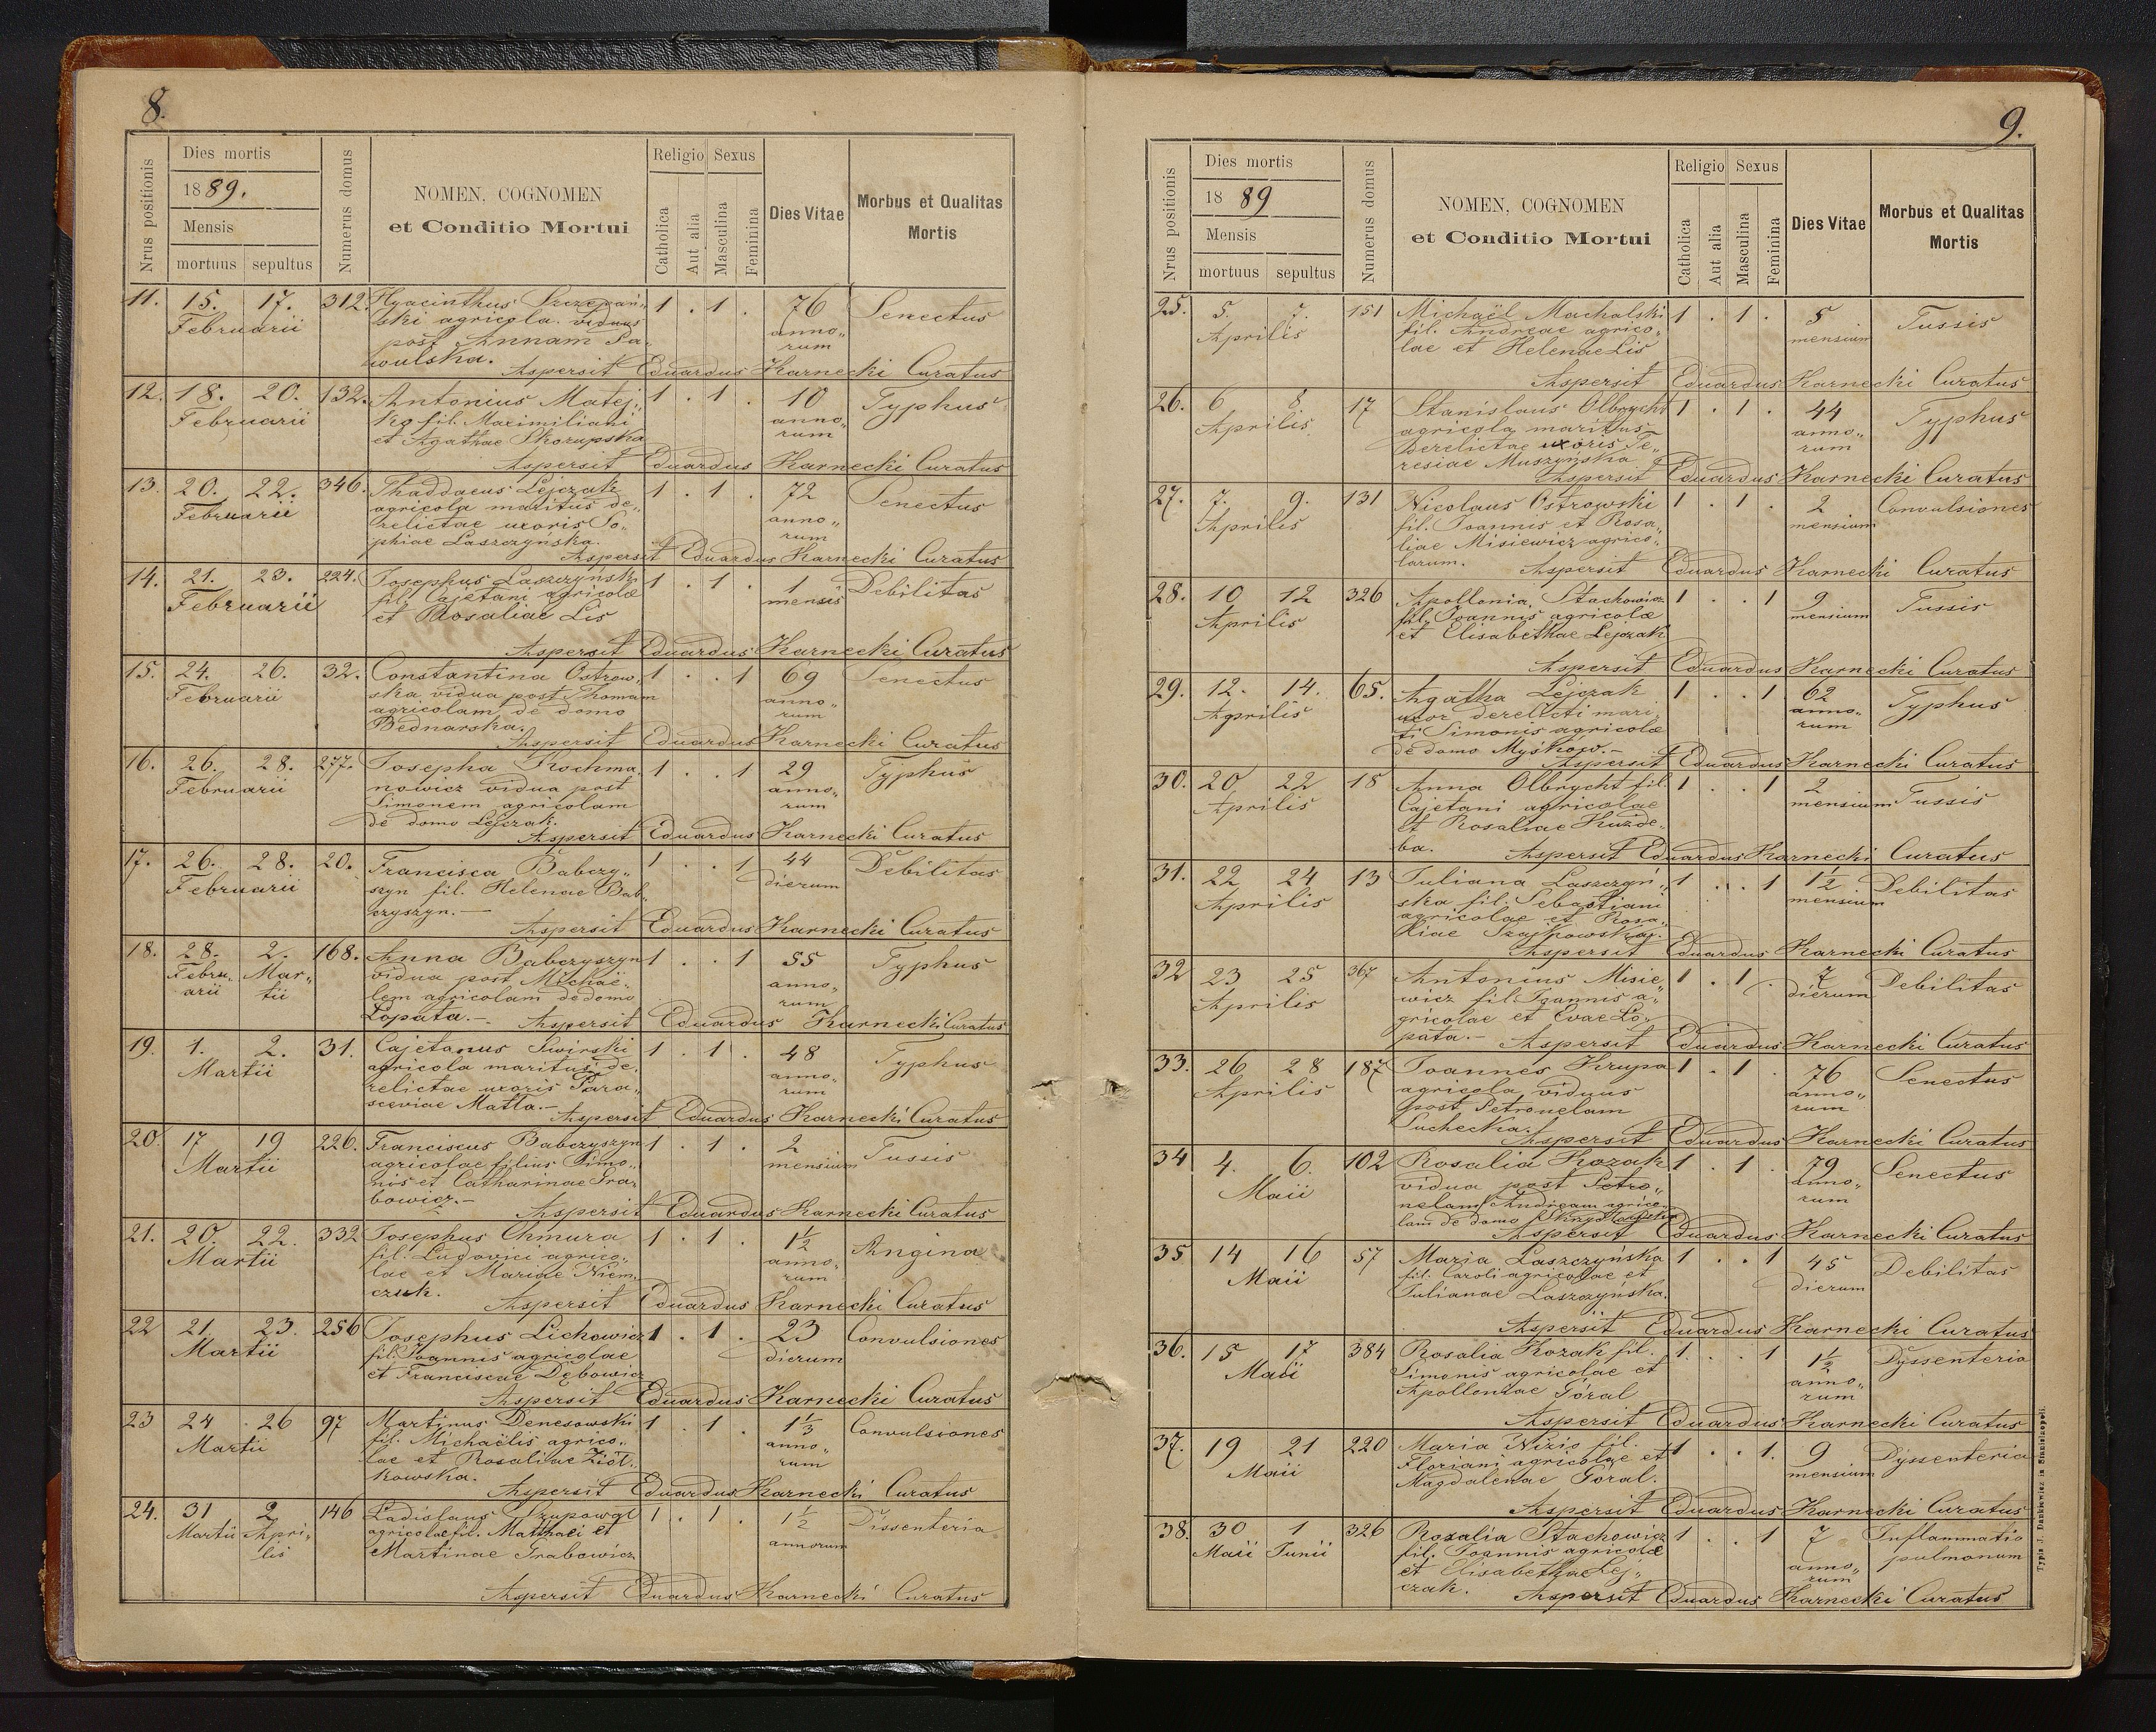 8.
Nrus positionis
Dies mortis
1889.
Mensis
mortuus sepultus
Numerus domus
NOMEN, COGNOMEN
et Conditio Mortui
Religio Sexus
Catholica
Aut alia
Masculina
Feminina
Dies Vitae
Morbus et Qualitas
Mortis
11. 15. 17. 312. Hyacinthus Szczepań„ 1 . 1 . 76 Senectus
Februarii ski agricola. viduus anno„
post Annam Pa„ rum
wulska.
Aspersit Eduardus Karnecki Curatus
12. 18. 20. 132. Antonius Matej„ 1 . 1 . 10 Typhus
Februarii ko fil. Maximiliani anno„
et Agathae Skorupska rum
Aspersit Eduardus Karnecki Curatus
13. 20. 22. 346. Thaddaeus Lejczak 1 . 1 . 72 Senectus
Februarii agricola maritus de„ anno„
relictae uxoris So„ rum
phiae Laszczyńska.
Aspersit Eduardus Karnecki Curatus
14. 21. 23. 224. Josephus Laszczyński 1 . 1 . 1 Debilitas
Februarii fil. Cajetani agricolae mensis
et Rosaliae Lis
Aspersit Eduardus Karnecki Curatus
15. 24. 26. 32. Constantina Ostrow„ 1 . . 1 69 Senectus
Februarii ska vidua post Thomam anno„
agricolam de domo rum
Bednarska.
Aspersit Eduardus Karnecki Curatus
16. 26. 28. 277. Josepha Kochma„ 1 . . 1 29 Typhus
Februarii nowicz vidua post anno„
Simonem agricolam rum
de domo Lejczak.
Aspersit Eduardus Karnecki Curatus
17. 26. 28. 20. Francisca Babczy„ 1 . . 1 44 Debilitas
Februarii szyn fil. Helenae Bab„ dierum
czyszyn. —
Aspersit Eduardus Karnecki Curatus
18. 28. 2. 168. Anna Babczyszyn 1 . . 1 55 Typhus
Febru„ Mar„ vidua post Michaë„ anno„
arii tii lem agricolam de domo rum
Łopata. — Aspersit Eduardus Karnecki Curatus
19. 1. 2. 31. Cajetanus Swirski 1 . 1 . 48 Typhus
Martii agricola maritus de„ anno„
relictae uxoris Para„ rum
sceviae Matła. —
Aspersit Eduardus Karnecki Curatus
20. 17 19 226. Franciscus Babczyszyn 1 . 1 . 2 Tussis
Martii agricolae filius Simo„ mensium
nis et Catharinae Gra„
bowicz. —
Aspersit Eduardus Karnecki Curatus
21. 20. 22. 332 Josephus Chmura 1 . 1 . 1½ Angina
Martii fil. Ludovici agrico„ anno„
lae et Mariae Niem„ rum
czuk.
Aspersit Eduardus Karnecki Curatus
22 21 23. 256 Josephus Lichowicz 1 . 1 . 23 Convulsiones
Martii fil. Joannis agricolae dierum
et Franciscae Dębowicz
Aspersit Eduardus Karnecki Curatus
23 24 26 97 Martinus Denesowski 1 . 1 . 1⅓ Convulsiones
Martii fil. Michaëlis agrico„ anno„
lae et Rosaliae Ziół„ rum
kowska.
Aspersit Eduardus Karnecki Curatus
24. 31 2 146 Ladislaus 1 . 1 . 1½ Dissenteria
Martii Apri„ agricolae fil. Matthaei et annorum
lis Martinae Grabowicz
Aspersit Eduardus Karnecki Curatus
9.
Nrus positionis
Dies mortis
1889
Mensis
mortuus sepultus
Numerus domus
NOMEN, COGNOMEN
et Conditio Mortui
Religio Sexus
Catholica
Aut alia
Masculina
Feminina
Dies Vitae
Morbus et Qualitas
Mortis
25. 5. 7. 151 Michaël Machalski 1 . 1 . 5 Tussis
Aprilis fil. Andreae agrico„ mensium
lae et Helenae Lis
Aspersit Eduardus Karnecki Curatus
26. 6 8 17 Stanislaus Olbrycht 1 . 1 . 44 Typhus
Aprilis agricola maritus anno„
derelictae uxoris Te„ rum
resiae Muszyńska
Aspersit Eduardus Karnecki Curatus
27. 7. 9. 131 Nicolaus Ostrowski 1 . 1 . 2 Convulsiones
Aprilis fil. Joannis et Rosa„ mensium
liae Misiewicz agrico„
larum.
Aspersit Eduardus Karnecki Curatus
28. 10 12 326 Apollonia Stachowicz 1 . . 1 9 Tussis
Aprilis fil. Joannis agricolae mensium
et Elisabethae Lejczak
Aspersit Eduardus Karnecki Curatus
29. 12. 14. 65. Agatha Lejczak 1 . . 1 62 Typhus
Aprilis uxor derelicti mari„ anno„
ti Simonis agricolae rum
de domo Myśkow. —
Aspersit Eduardus Karnecki Curatus
30. 20 22 18 Anna Olbrycht fil. 1 . . 1 2 Tussis
Aprilis Cajetani agricolae mensium
et Rosaliae Kuzde„
ba. Aspersit Eduardus Karnecki Curatus
31. 22 24 13 Juliana Laszczyń„ 1 . . 1 1½ Debilitas
Aprilis ska fil. Sebastiani mensium
agricolae et Rosa„
liae
Aspersit Eduardus Karnecki Curatus
32 23 25 367 Antonius Misie„ 1 . 1 . 7 Debilitas
Aprilis wicz fil. Joannis a„ dierum
gricolae et Evae Ło„
pata. — Aspersit Eduardus Karnecki Curatus
33. 26 28 187 Joannes Krupa 1 . 1 . 76 Senectus
Aprilis agricola viduus anno„
post Petronelam rum
Suchecka.
Aspersit Eduardus Karnecki Curatus
34 4. 6. 102 Rosalia Kozak 1 . 1 . 79 Senectus
Maii vidua post Petro„ anno„
nelam Andream agrico„ rum
lam de domo
Aspersit Eduardus Karnecki Curatus
35 14 16 57 Maria Laszczyńska 1 . . 1 45 Debilitas
Maii fil. Caroli agricolae et dierum
Julianae Laszczyńska.
Aspersit Eduardus Karnecki Curatus
36. 15 17 384 Rosalia Kozak fil. 1 . . 1 1½ Dyssenteria
Maii Simonis agricolae et anno„
Apolloniae Góral rum
Aspersit Eduardus Karnecki Curatus
37. 19 21 220 Maria Nizio fil. 1 . . 1. 9 Dyssenteria
Maii Floriani agricolae et mensium
Magdalenae Góral.
Aspersit Eduardus Karnecki Curatus
38. 30 1 326 Rozalia Stachowicz 1 . . 1 7 Inflammatio
Maii Junii fil. Joannis agricolae anno„ pulmonum
et Elisabethae Lej„ rum
czak.
Aspersit Eduardus Karnecki Curatus
Typis J. Dankiewicz in Stanislaopoli.